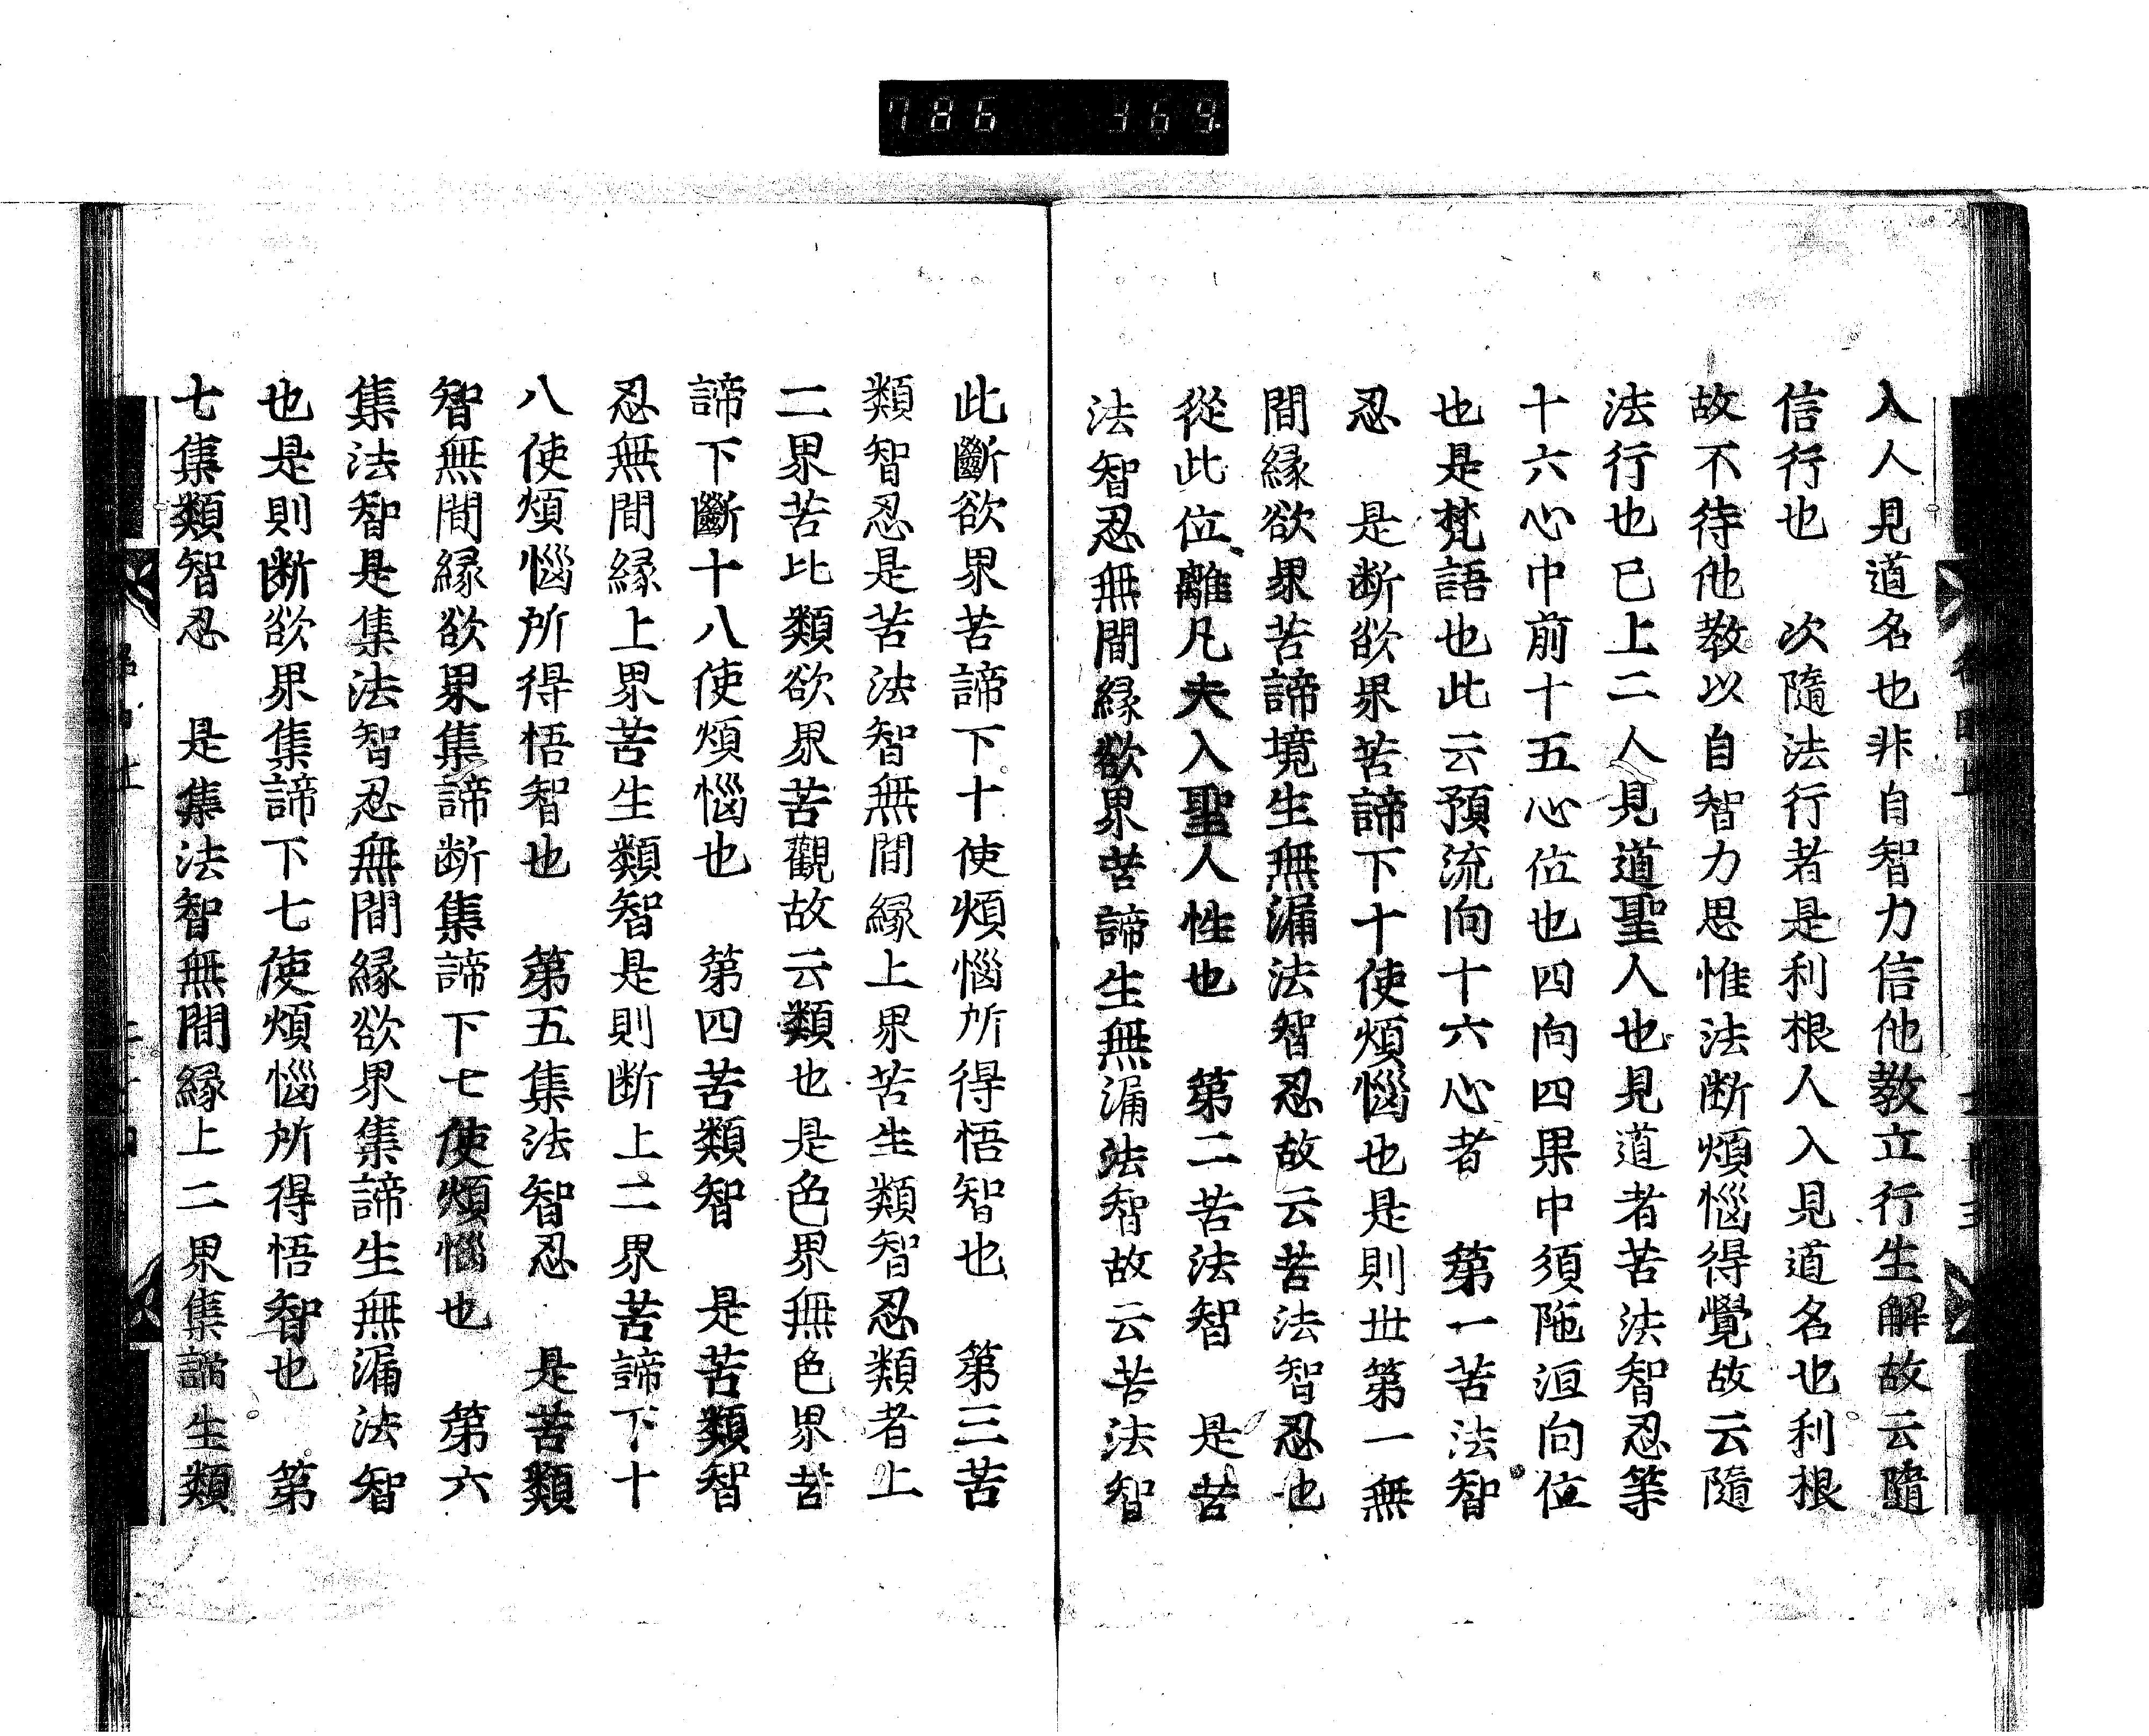 786 369
入人見道名也非自智力信他教立行生解故云隨
信行也　次隨法行者是利根人入見道名也利根
故不待他教以自智力思惟法断煩惱得覺故云隨
法行也已上二人見道聖人也見道者苦法智忍等
十六心中前十五心位也四向四果中須陁洹向位
也是梵語也此云預流向十六心者　第一苦法智
忍　是断欲界苦諦下十使煩惱也是則世第一無
間縁欲界苦諦境生無漏法智忍故云苦法智忍也
從此位離凡夫入聖人性也　第二苦法智　是苦
法智忍無間縁欲界苦諦生無漏法智故云苦法智
此斷欲界苦諦下十使煩惱所得悟智也　第三苦
類智忍是苦法智無間縁上界苦生類智忍類者上
二界苦比類欲界苦觀故云類也是色界無色界苦
諦下斷十八使煩惱也　第四苦類智　是苦類智
忍無間縁上界苦生類智是則断上二界苦諦下十
八使煩惱所得悟智也　第五集法智忍　是苦類
智無間縁欲界集諦断集諦下七使煩惱也　第六
集法智是集法智忍無間縁欲界集諦生無漏法智
也是則断欲界集諦下七使煩惱所得悟智也　第
七集類智忍　是集法智無間縁上二界集諦生類